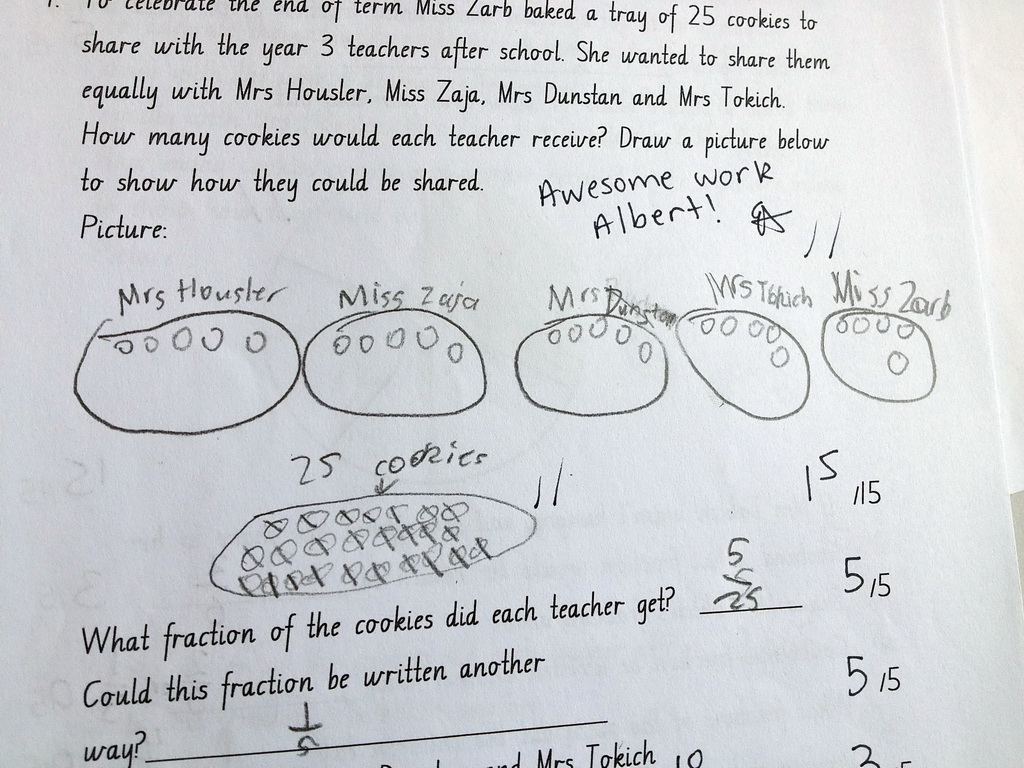 1. To celebrate the end of term Miss Zarb baked a tray of 25 cookies to
share with the year 3 teachers after school. She wanted to share them
equally with Mrs Housler, Miss Zaja, Mrs Dunstan and Mrs Tokich.
How many cookies would each teacher receive? Draw a picture below
to show how they could be shared.
Awesome work
Albert!
Picture:
Mrs Housler Miss Zaja Mrs Dunstan Mrs Tokich Miss Zarb
25 cookies
15 /15
What fraction of the cookies did each teacher get? 5/25
5 /5
Could this fraction be written another
5 /5
way? 1/5
and Mrs Tokich 10